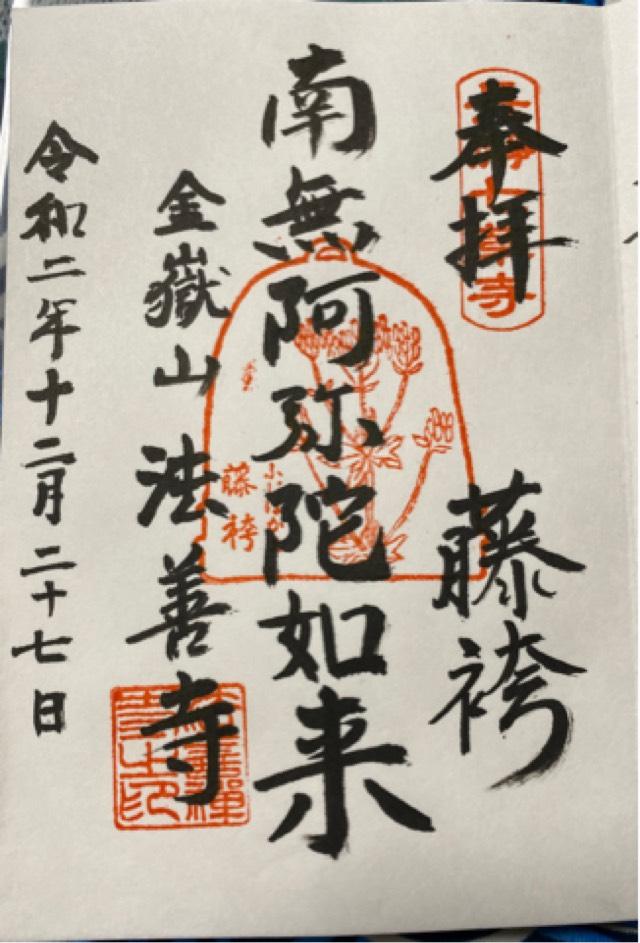 奉拝
藤袴
南無阿弥陀如来
ふじばかま
藤袴
金嶽山 法善寺
令和二年十二月二十七日